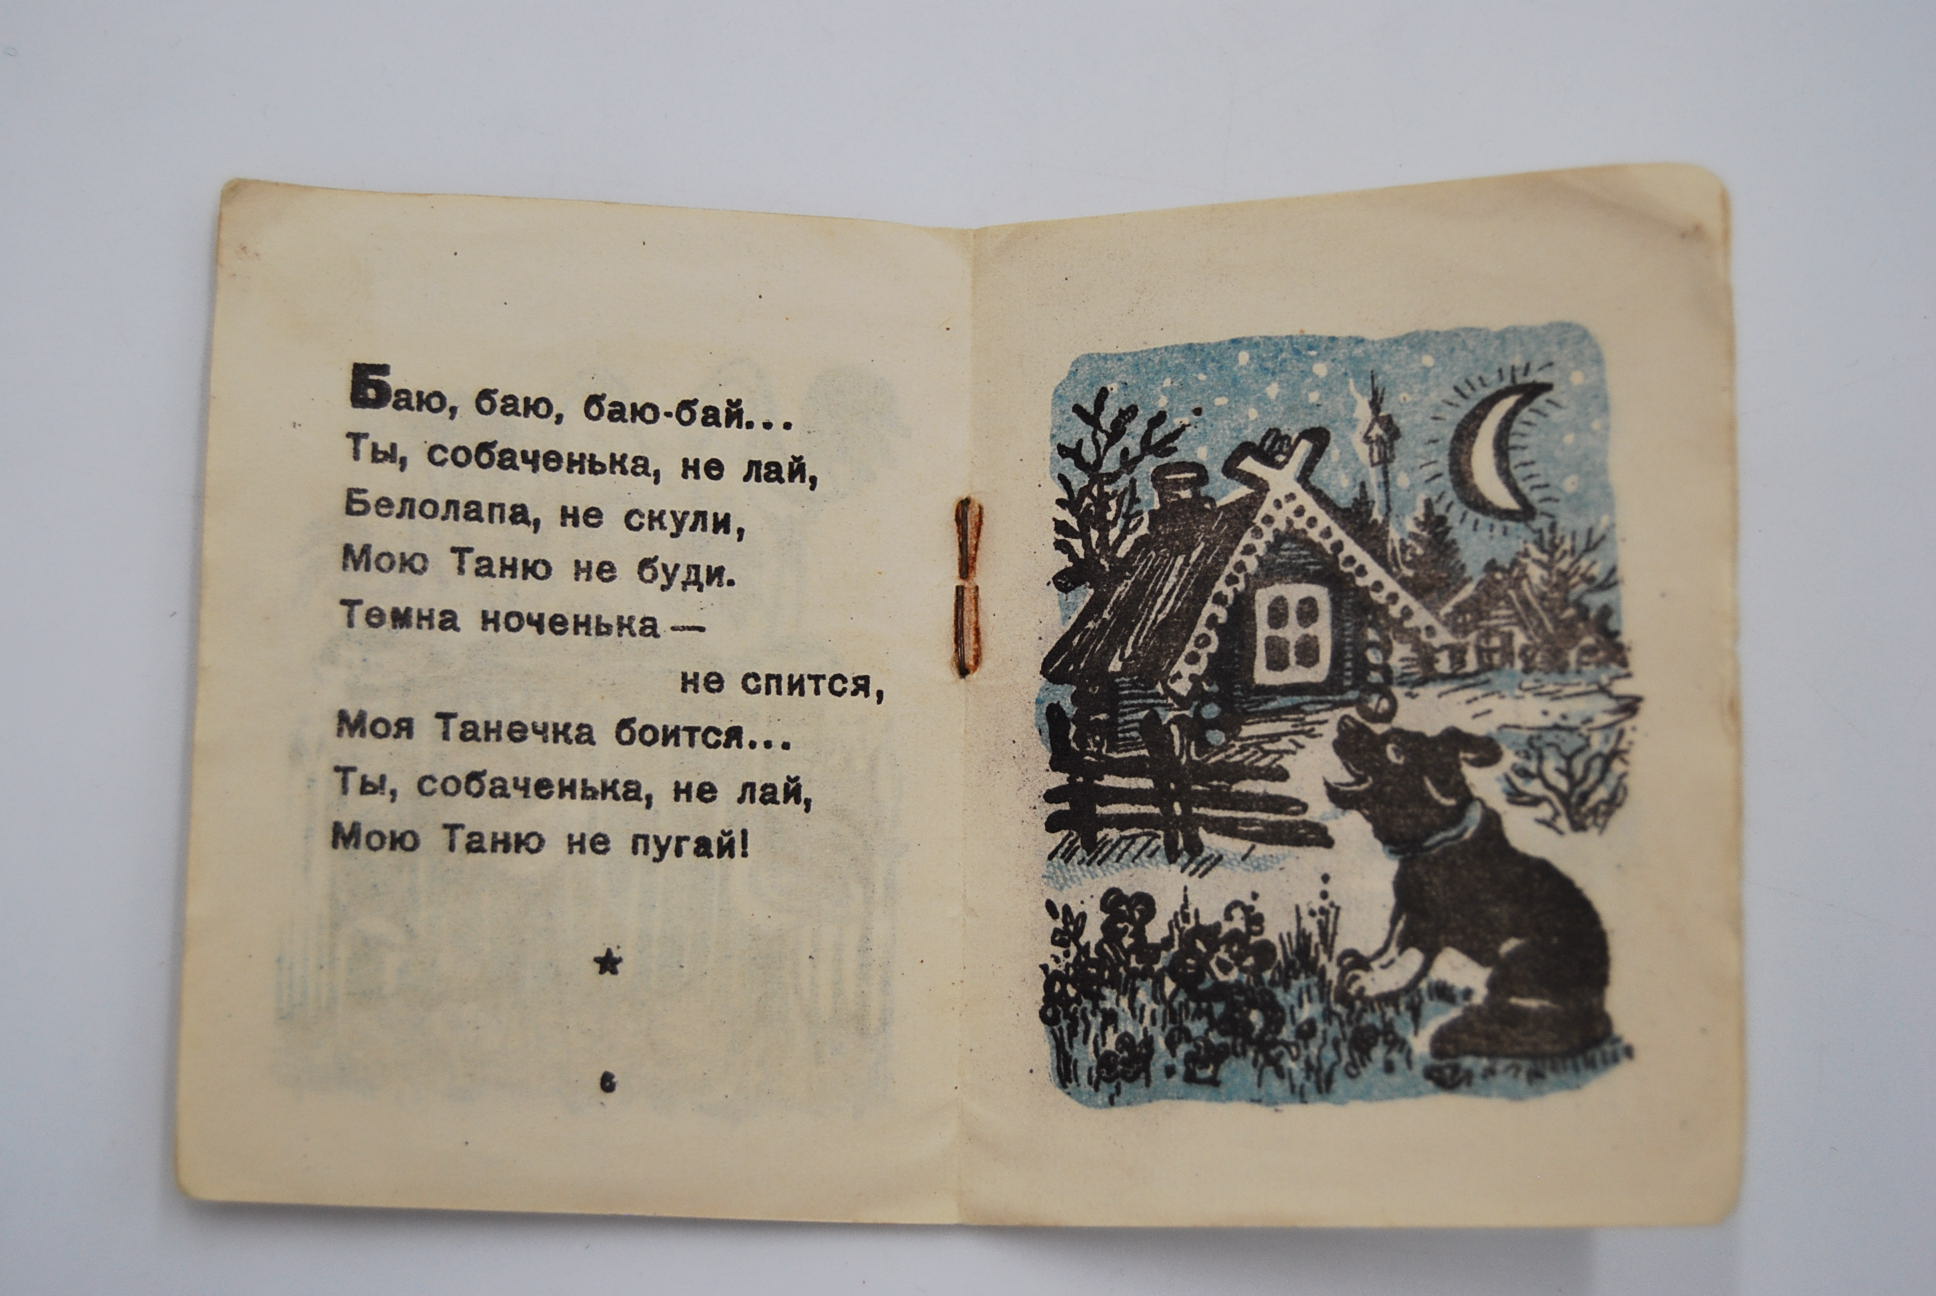 Баю, баю, баю-бай...
Ты, собаченька, не лай,
Белолапа, не скули,
Мою Таню не буди.
Темна ноченька —
не спится,
Моя Танечка боится...
Ты, собаченька, не лай,
Мою Таню не пугай!
★
6